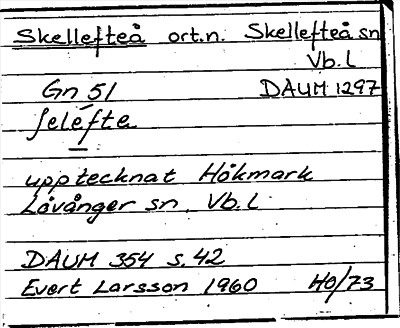 Skellefteå ort.n. Skellefteå sn
Vb.l
Gn 51 DAUM 1297
ſeléfte
upptecknat Hökmark
Lövånger sn, Vb.l
DAUM 354 s. 42
Evert Larsson 1960 HO/73